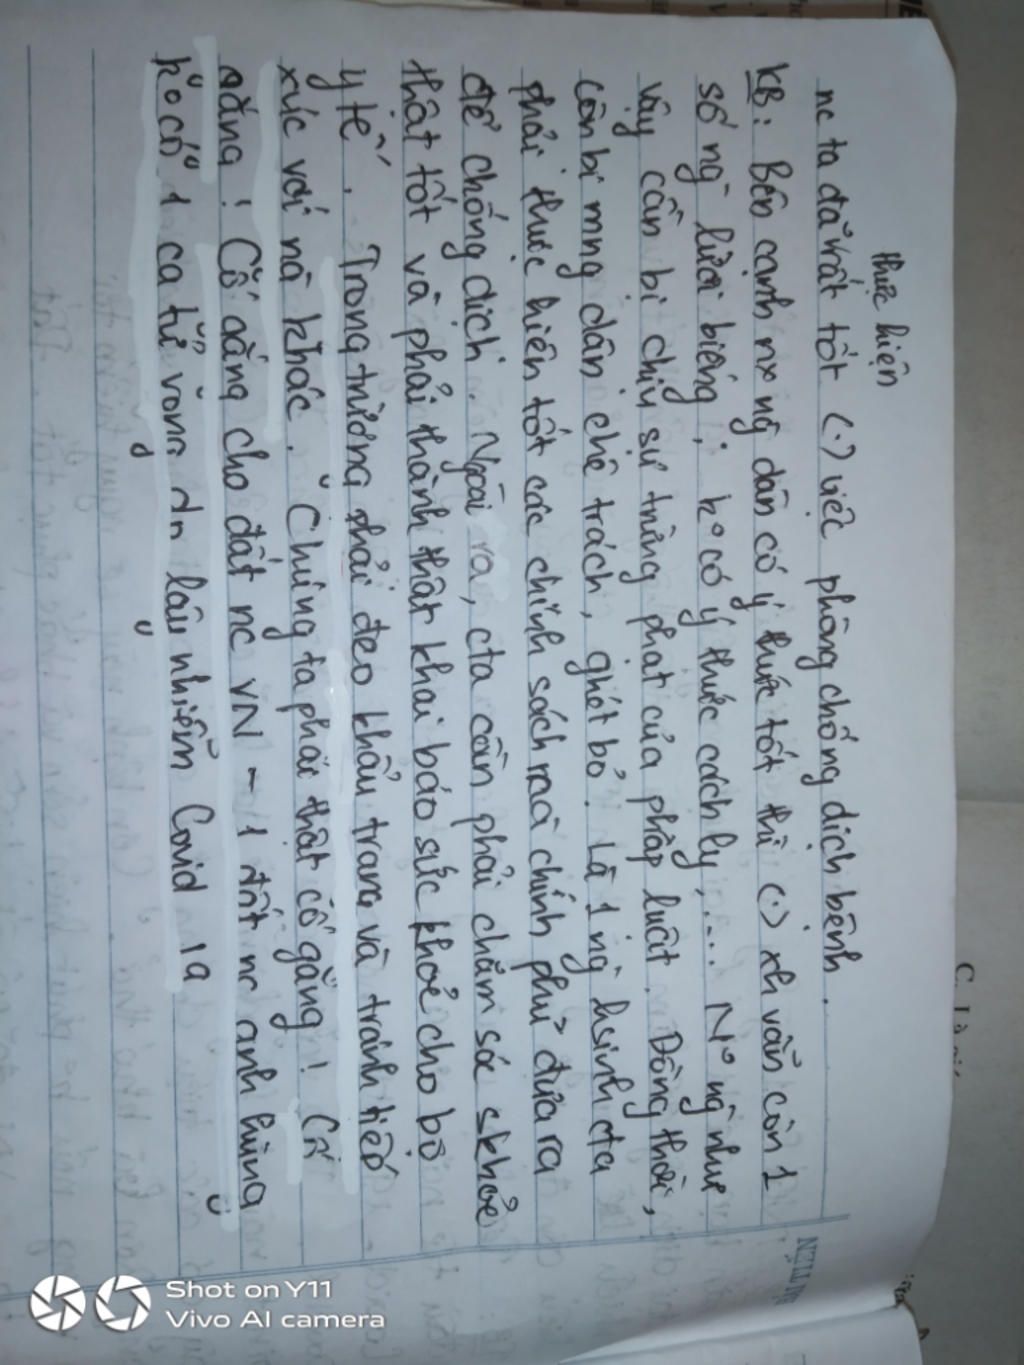 thực hiện
nc ta đã rất tốt (.) việc phòng chống dịch bệnh.
KB: Bên cạnh nx ng dân có ý thức tốt thì (.) xh vẫn còn 1
số ng lười biếng, ko có ý thức cách ly,... Nº ng như
vậy cần bị chịu sự trừng phạt của pháp luật. Đồng thời,
còn bị mng dân chê trách, ghét bỏ. Là 1 ng hsinh cta
phải thực hiện tốt các chính sách mà chính phủ đưa ra
để chống dịch. Ngoài ra, cta cần phải chăm sóc skhoẻ
thật tốt và phải thành thật khai báo sức khoẻ cho bộ
y tế. Trong trường phải đeo khẩu trang và tránh tiếp
xúc với nà khác. Chúng ta phải thật cố gắng! Cố
gắng! Cố gắng cho đất nc VN - 1 đất nc anh hùng
ko có 1 ca tử vong do lây nhiễm Covid 19
Shot on Y11
Vivo AI camera